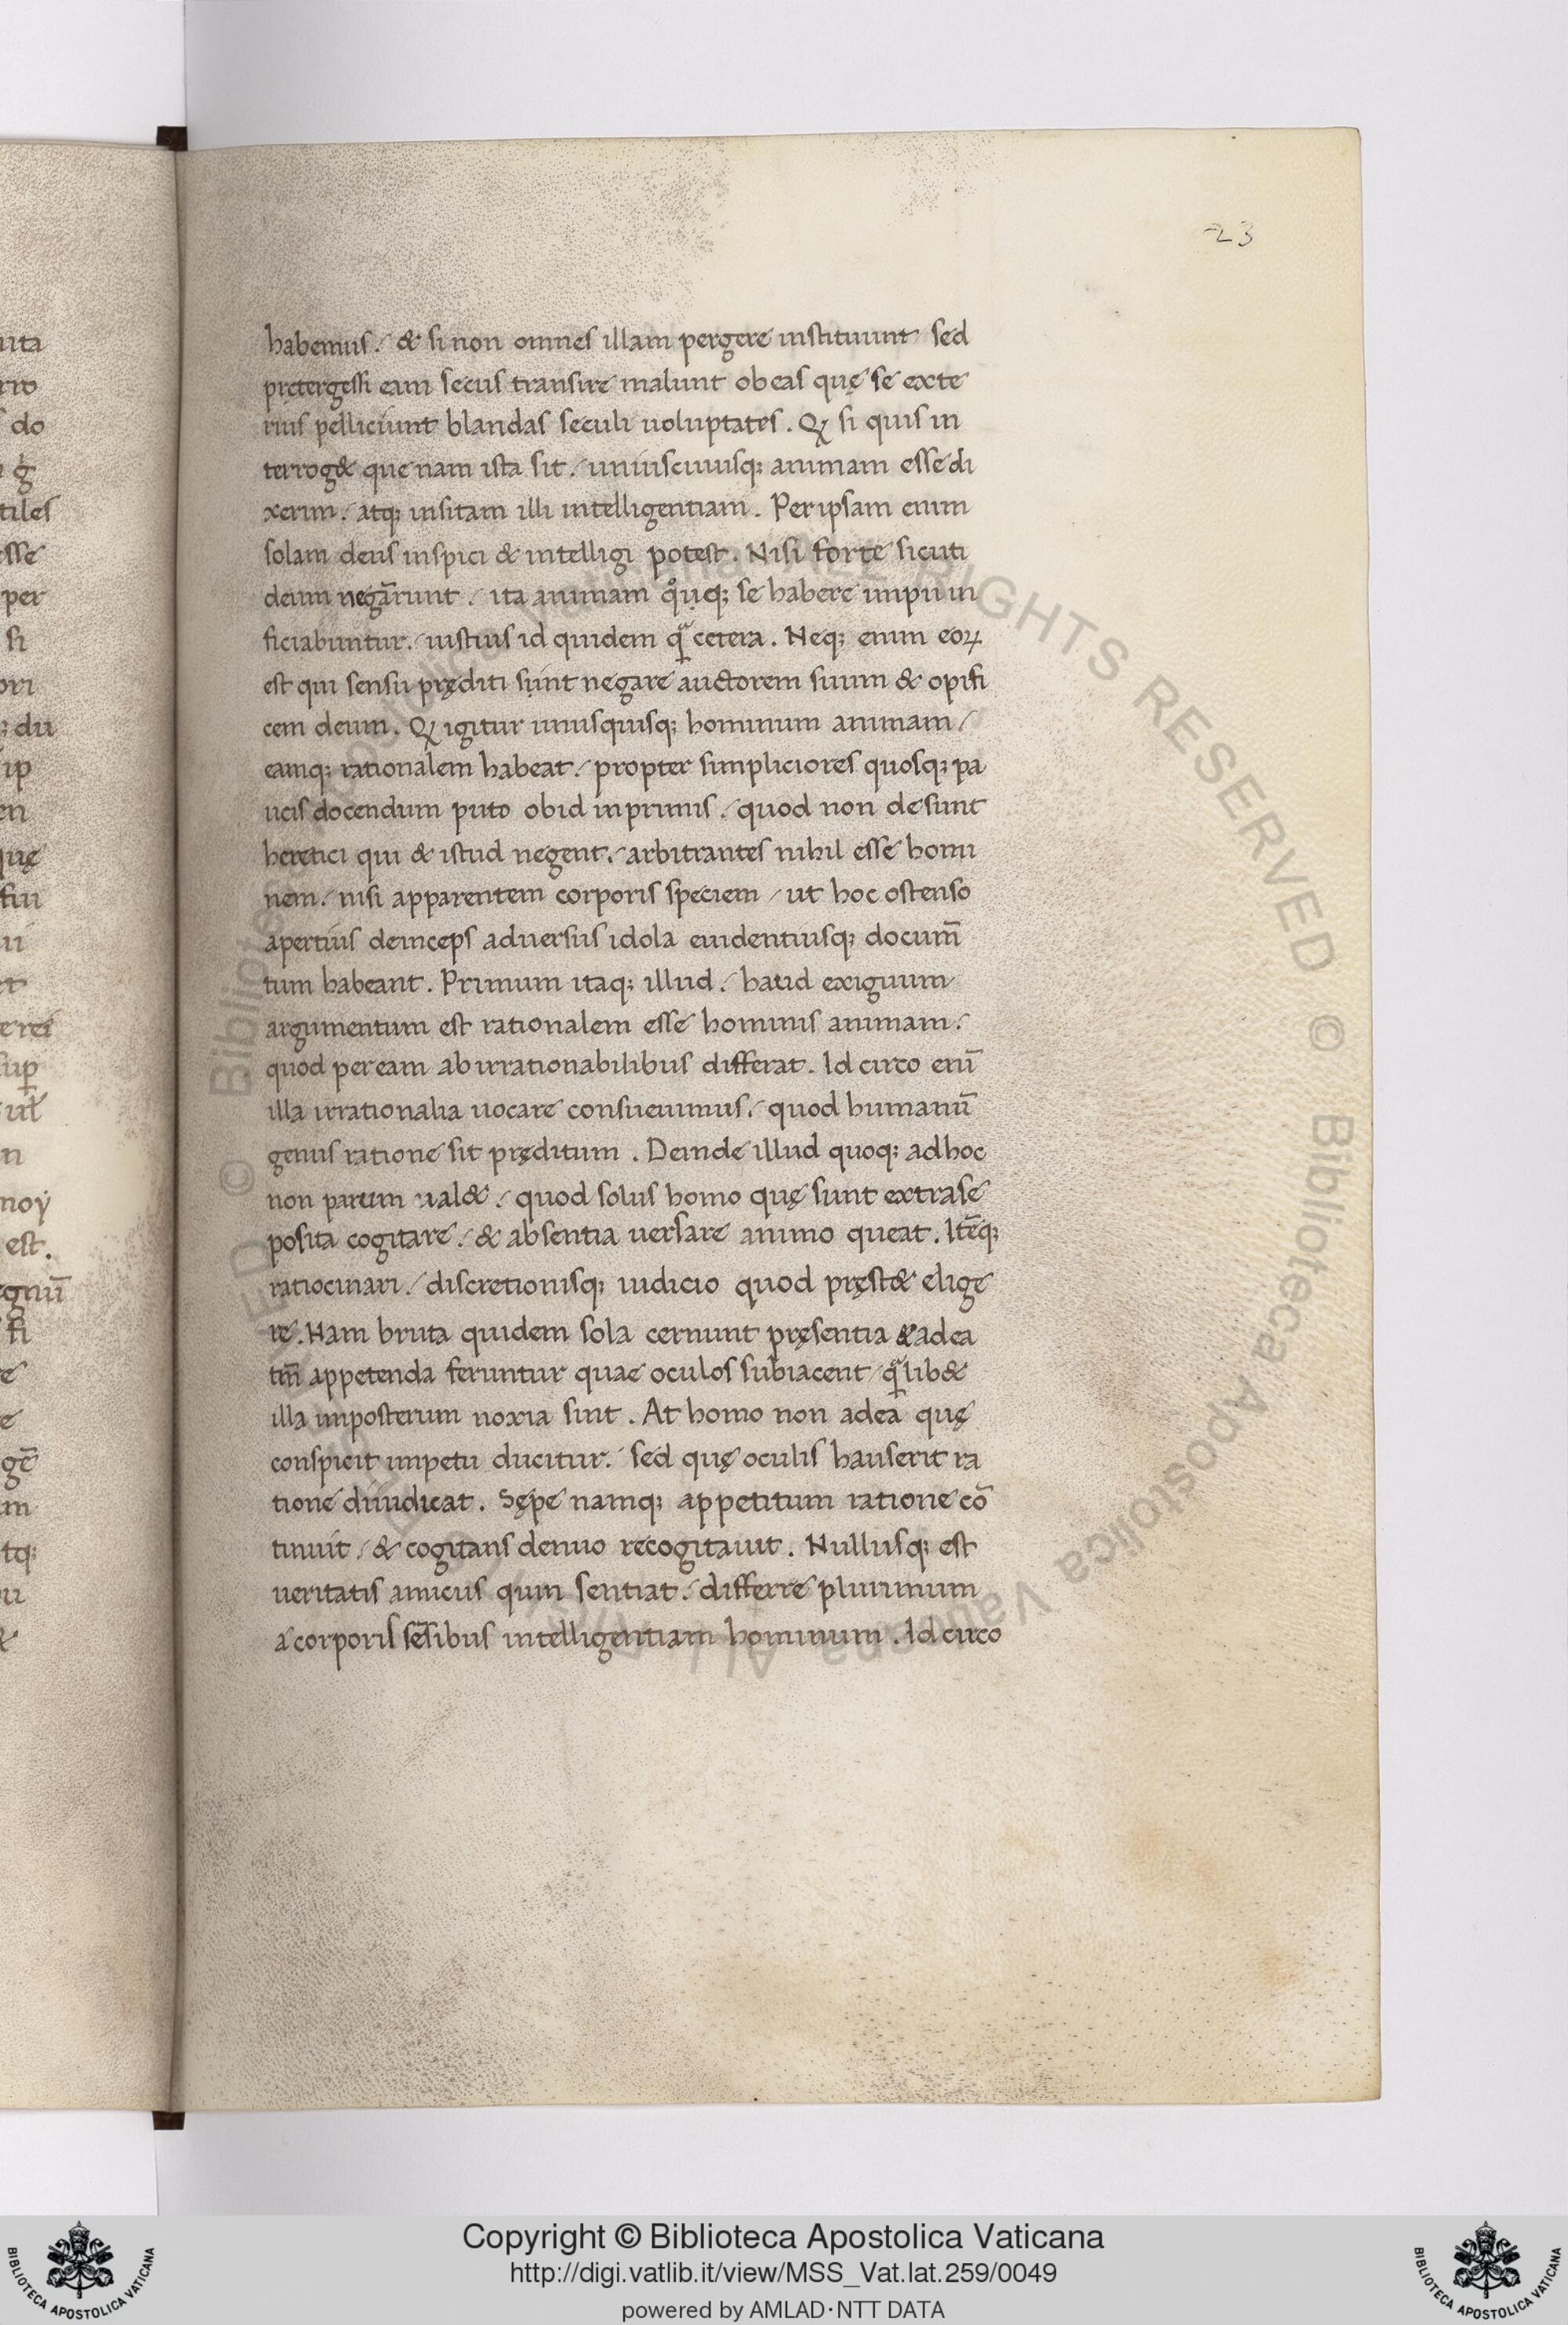 23
habemus./ & si non omnes illam pergere instituunt sed
pretergressi eam secus transire malunt ob eas quę se exte
rius pelliciunt blandas seculi uoluptates. Qꝫ si quis in
terrog& que nam ista sit./ uniuscuiusqꝫ animam esse di
xerim./ atqꝫ insitam illi intelligentiam. Per ipsam enim
solam deus inspici & intelligi potest. Nisi forte sicuti
deum negar̄unt./ ita animam qͦuqꝫ se habere impii in
ficiabuntur./ iustius id quidem qᷓ cetera. Neqꝫ enim eoꝝ
est qui sensu pręditi sunt negare auctorem suum & opifi
cem deum. Qꝫ igitur unusquisqꝫ hominum animam/
eamqꝫ rationalem habeat./ propter simpliciores quosqꝫ pa
ucis docendum puto ob id inprimis./ quod non desunt
heretici qui & istud negent./ arbitrantes nihil esse homi
nem./ nisi apparentem corporis speciem / ut hoc ostenso
apertius deinceps aduersus idola euidentiusqꝫ docum̄
tum habeant. Primum itaqꝫ illud./ haud exiguum
argumentum est rationalem esse hominis animam./
quod per eam ab irrationabilibus differat. Id circo enī
illa irrationalia uocare consueuimus./ quod humanū
genus ratione sit pręditum. Deinde illud quoqꝫ ad hoc
non parum ual&./ quod solus homo quę sunt extra se
posita cogitare./ & absentia uersare animo queat. Itēqꝫ
ratiocinari./ discretionisqꝫ iudicio quod pręst& elige
re. Nam bruta quidem sola cernunt pręsentia & ad ea
tm̄ appetenda feruntur quae oculos subiacent / qᷓlib&
illa imposterum noxia sint. At homo non ad ea quę
conspicit impetu ducitur./ sed quę oculis hauserit ra
tione diiudicat. Sępe namqꝫ appetitum ratione cō
tinuit / & cogitans denuo recogitauit. Nullusqꝫ est
ueritatis amicus quin sentiat./ differre plurimum
a corporis sēsibus intelligentiam hominum. Id circo
Copyright © Biblioteca Apostolica Vaticana
http://digi.vatlib.it/view/MSS_Vat.lat.259/0049
powered by AMLAD·NTT DATA